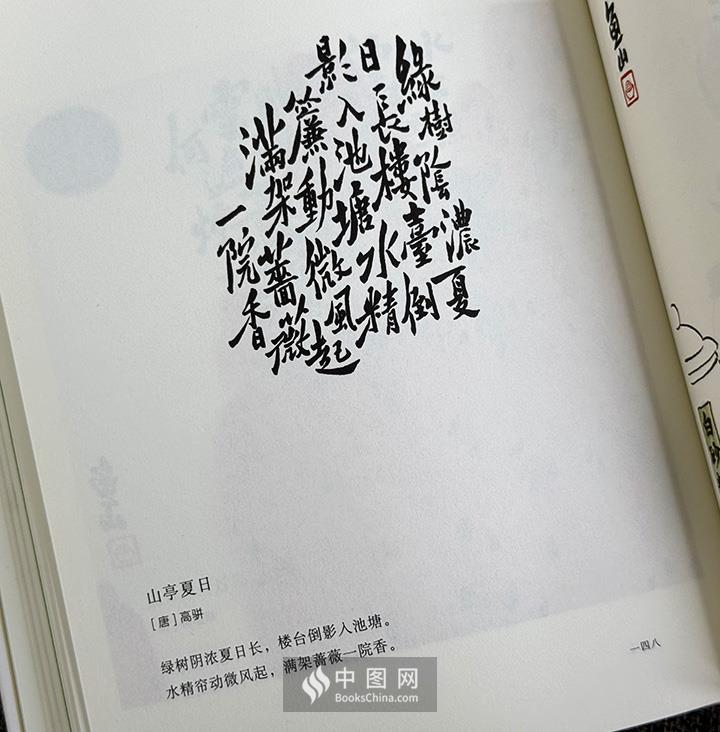 綠樹陰濃夏
日長樓臺倒
影入池塘水精
簾動微風起
滿架薔薇
一院香
山亭夏日
[唐]高骈
绿树阴浓夏日长，楼台倒影入池塘。
水精帘动微风起，满架蔷薇一院香。
一四八
中图网
BooksChina.com